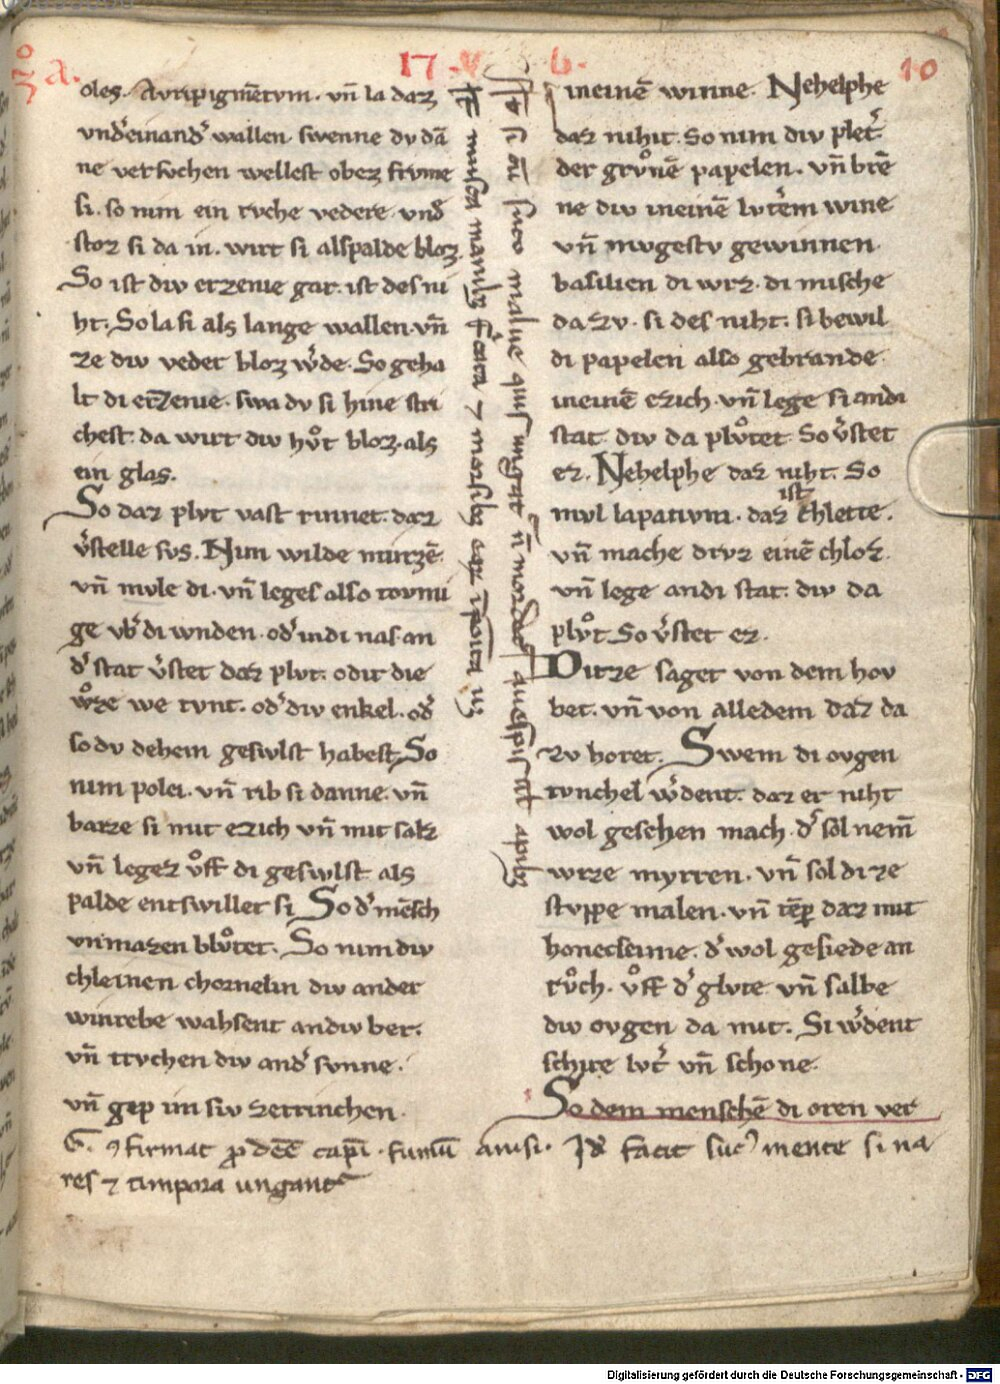 a. 17 b. 10
oles. Avripigm̄etvm. vn̄ la daz
vnd̾einand̾ wallen. swenne dv dā
ne versvchen wellest obez frvme
si. so nim ein rvche vedere vnd̾
stoz si da in. wirt si alspalde bloz.
So ist div erzenie gar. ist des ni
ht. So la si als lange wallen. vn̄
ze div veder bloz w̾de. So geha
lt di erzenie. swa dv si hine stri
chest. da wirt div hvͦt bloz. als
ein glas.
So daz plvt vast rinnet. daz
v̾stelle svs. Nim wilde minzē.
vn̄ mvle di. vn̄ leges also
ge vb̾ di wnden. od̾ in di nas. an
d̾ stat v̾stet daz plvt. odir die
we tvnt. od̾ div enkel. od̾
so dv dehein geswlst habest. So
nim polei. vn̄ rib si danne. vn̄
baize si mit ezich vn̄ mit salz
vn̄ legez vͦff di geswlst als
palde entswillet si So d̾ mēsch
vnmazen blvͦtet. So nim div
chleinen chornelin div ander
winrebe wahsent an div ber.
vn̄ trvchen div and̾ svnne.
vn̄ gep im siv zetrinchen.
meinē winne. Nehelphe
daz niht. So nim div plet̾.
der grvͦnē papelen. vn̄ brē
ne div meinē lvt̾em wine
vn̄ mvgestv gewinnen.
basilien di wrz. di mische
dazv. si des niht. si bewil
di papelen also gebrande.
meinē ezich. vn̄ lege si andi
stat. div da plvͦtet. So v̾stet
ez. Nehelphe daz niht. So
mvl lapativm. daz ist chlette.
vn̄ mache drvz einē chloz.
vn̄ lege andi stat. div da
plvͦt. So v̾stet ez.
Ditze saget von dem hov
bet. vn̄ von alledem daz da
zv horet. Swem di ovgen
tvnchel w̾dent. daz er niht
wol gesehen mach. d̾ sol nem̄
wrze myrren. vn̄ sol di ze
stvppe malen. vn̄ tēp̄ daz mit
honecseime. d̾ wol gesiede an
rvͦch. vͦff d̾ glvte vn̄ salbe
div ovgen da mit. Si w̾dent
schire lvt̾ vn̄ schone.
So dem menschē di oren ver
G. ꝯfirmat capi. fumū anisi. Id̾ facit suc mente si na
res ⁊ timpora ungant̾
Digitalisierung gefördert durch die Deutsche Forschungsgemeinschaft - DFG